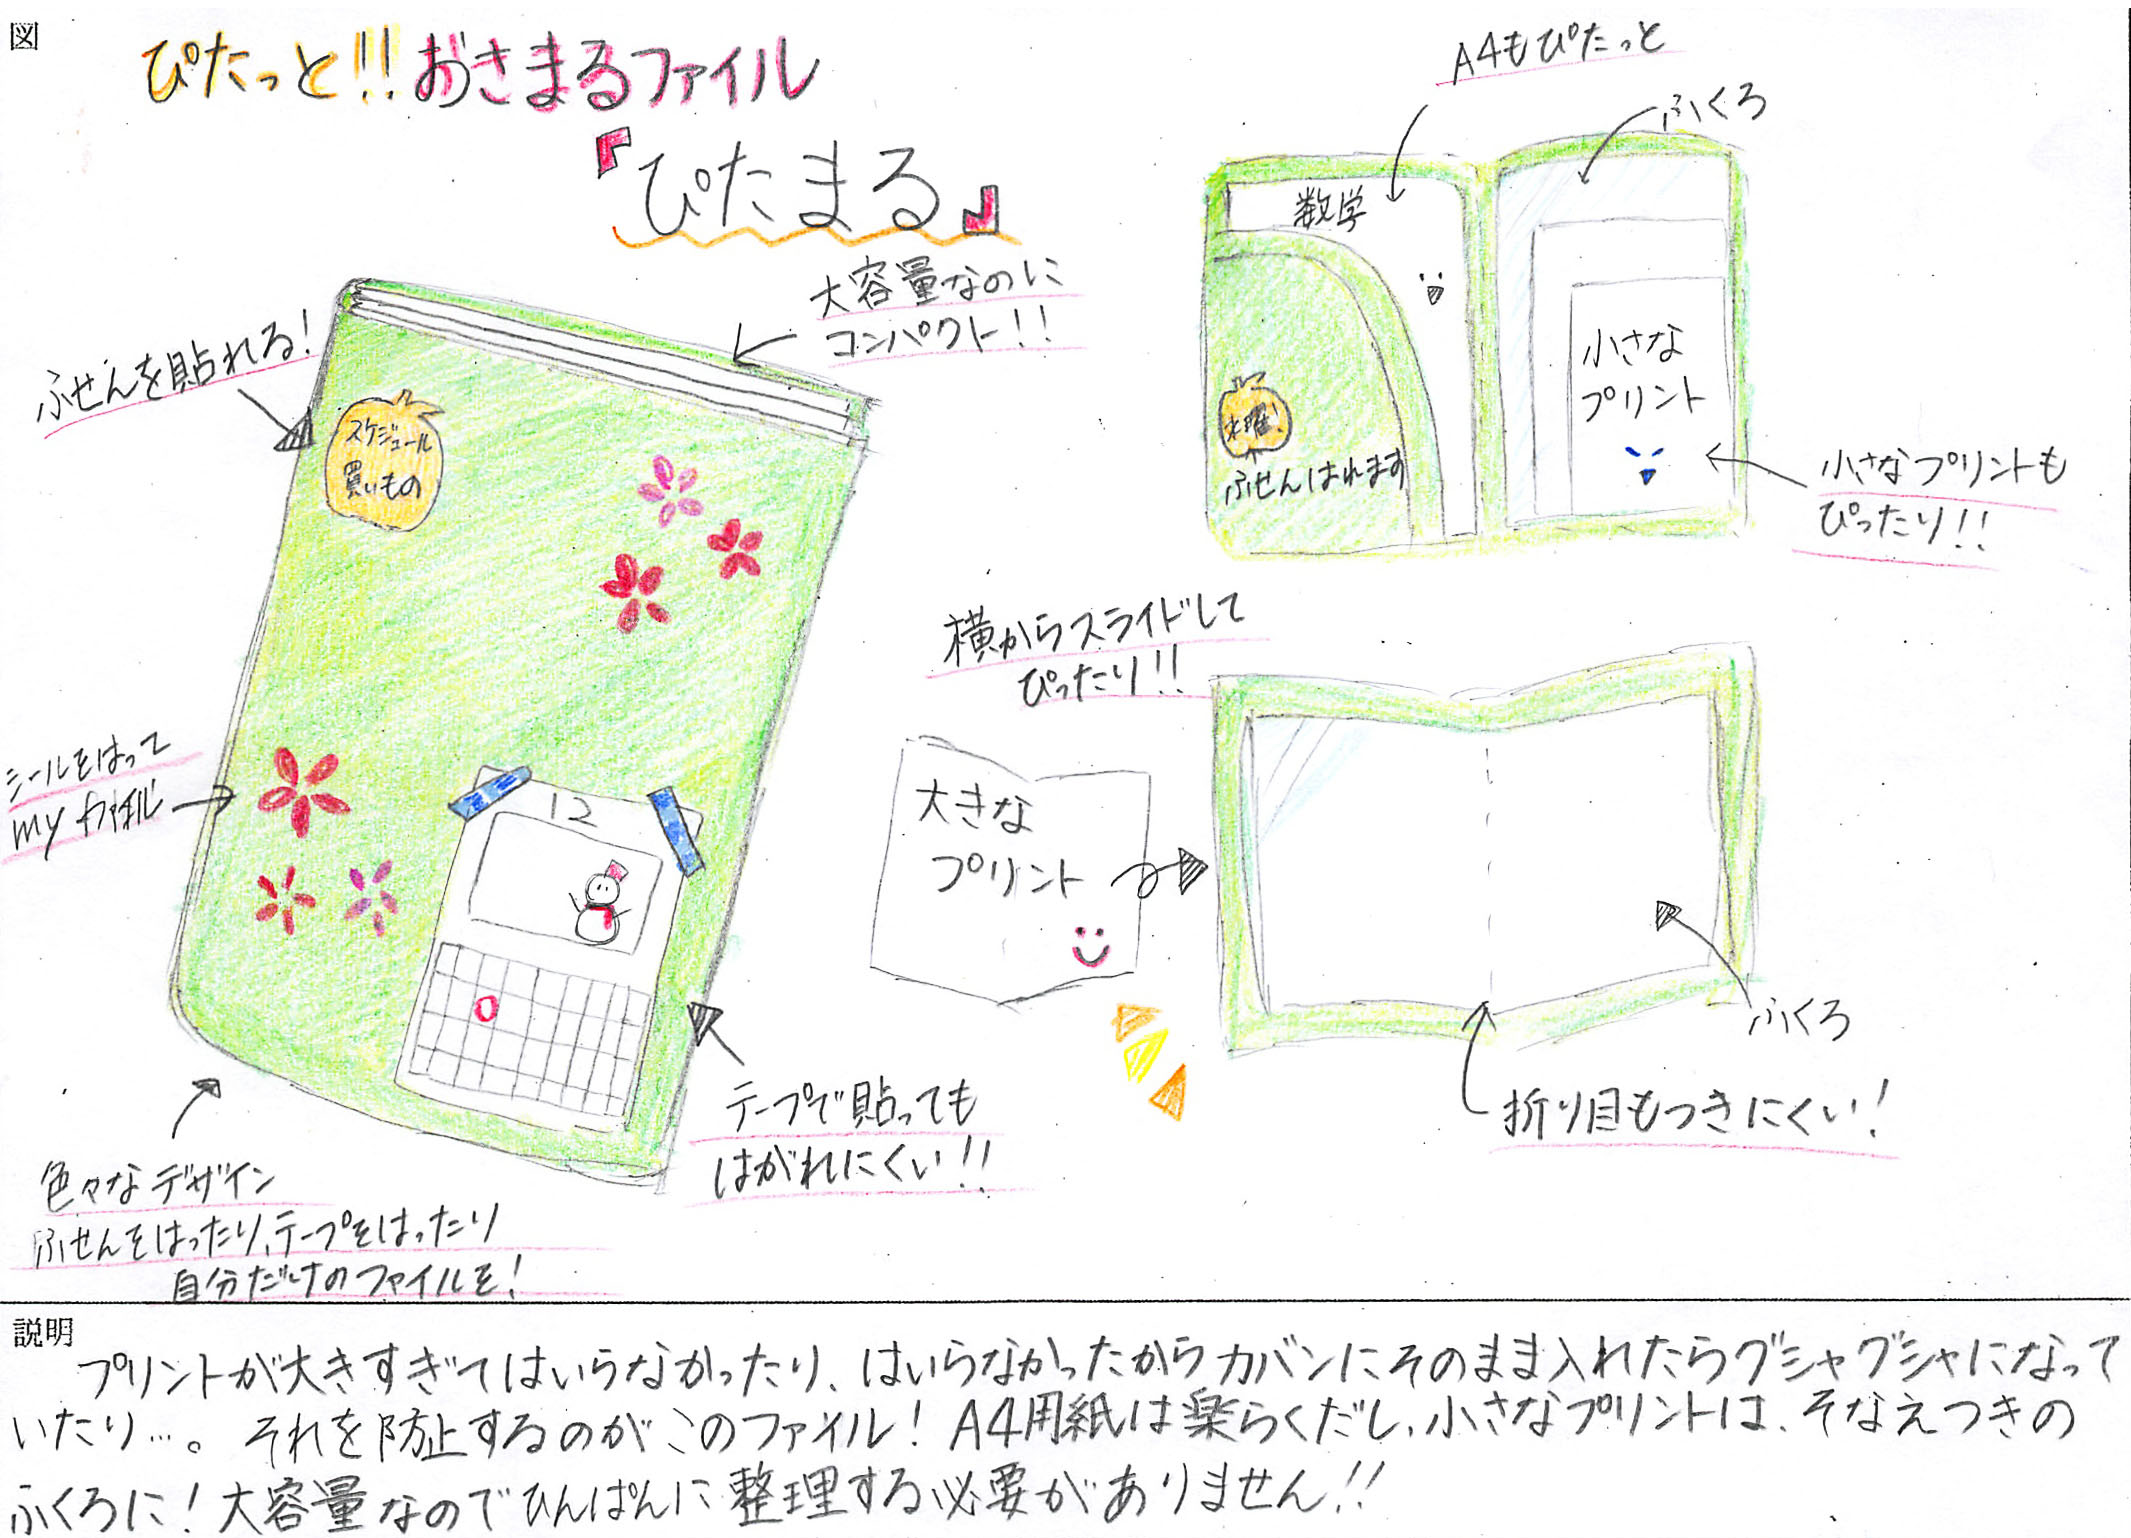 図
ぴたっと!!おさまるファイル
『ぴたまる』
大容量なのに
コンパクト!!
ふせんを貼れる!
スケジュール
買いもの
シールをはって
my ファイル
12
テープで貼っても
はがれにくい!!
色々なデザイン
ふせんをはったり、テープをはったり
自分だけのファイルを!
A4もぴたっと
ふくろ
数学
水曜!
ふせんはれます
小さな
プリント
小さなプリントも
ぴったり!!
横からスライドして
ぴったり!!
大きな
プリント
ふくろ
折り目もつきにくい!
説明
プリントが大きすぎてはいらなかったり、はいらなかったからカバンにそのまま入れたらグシャグシャになって
いたり…。それを防止するのがこのファイル!A4用紙は楽らくだし、小さなプリントは、そなえつきの
ふくろに!大容量なのでひんぱんに整理する必要がありません!!